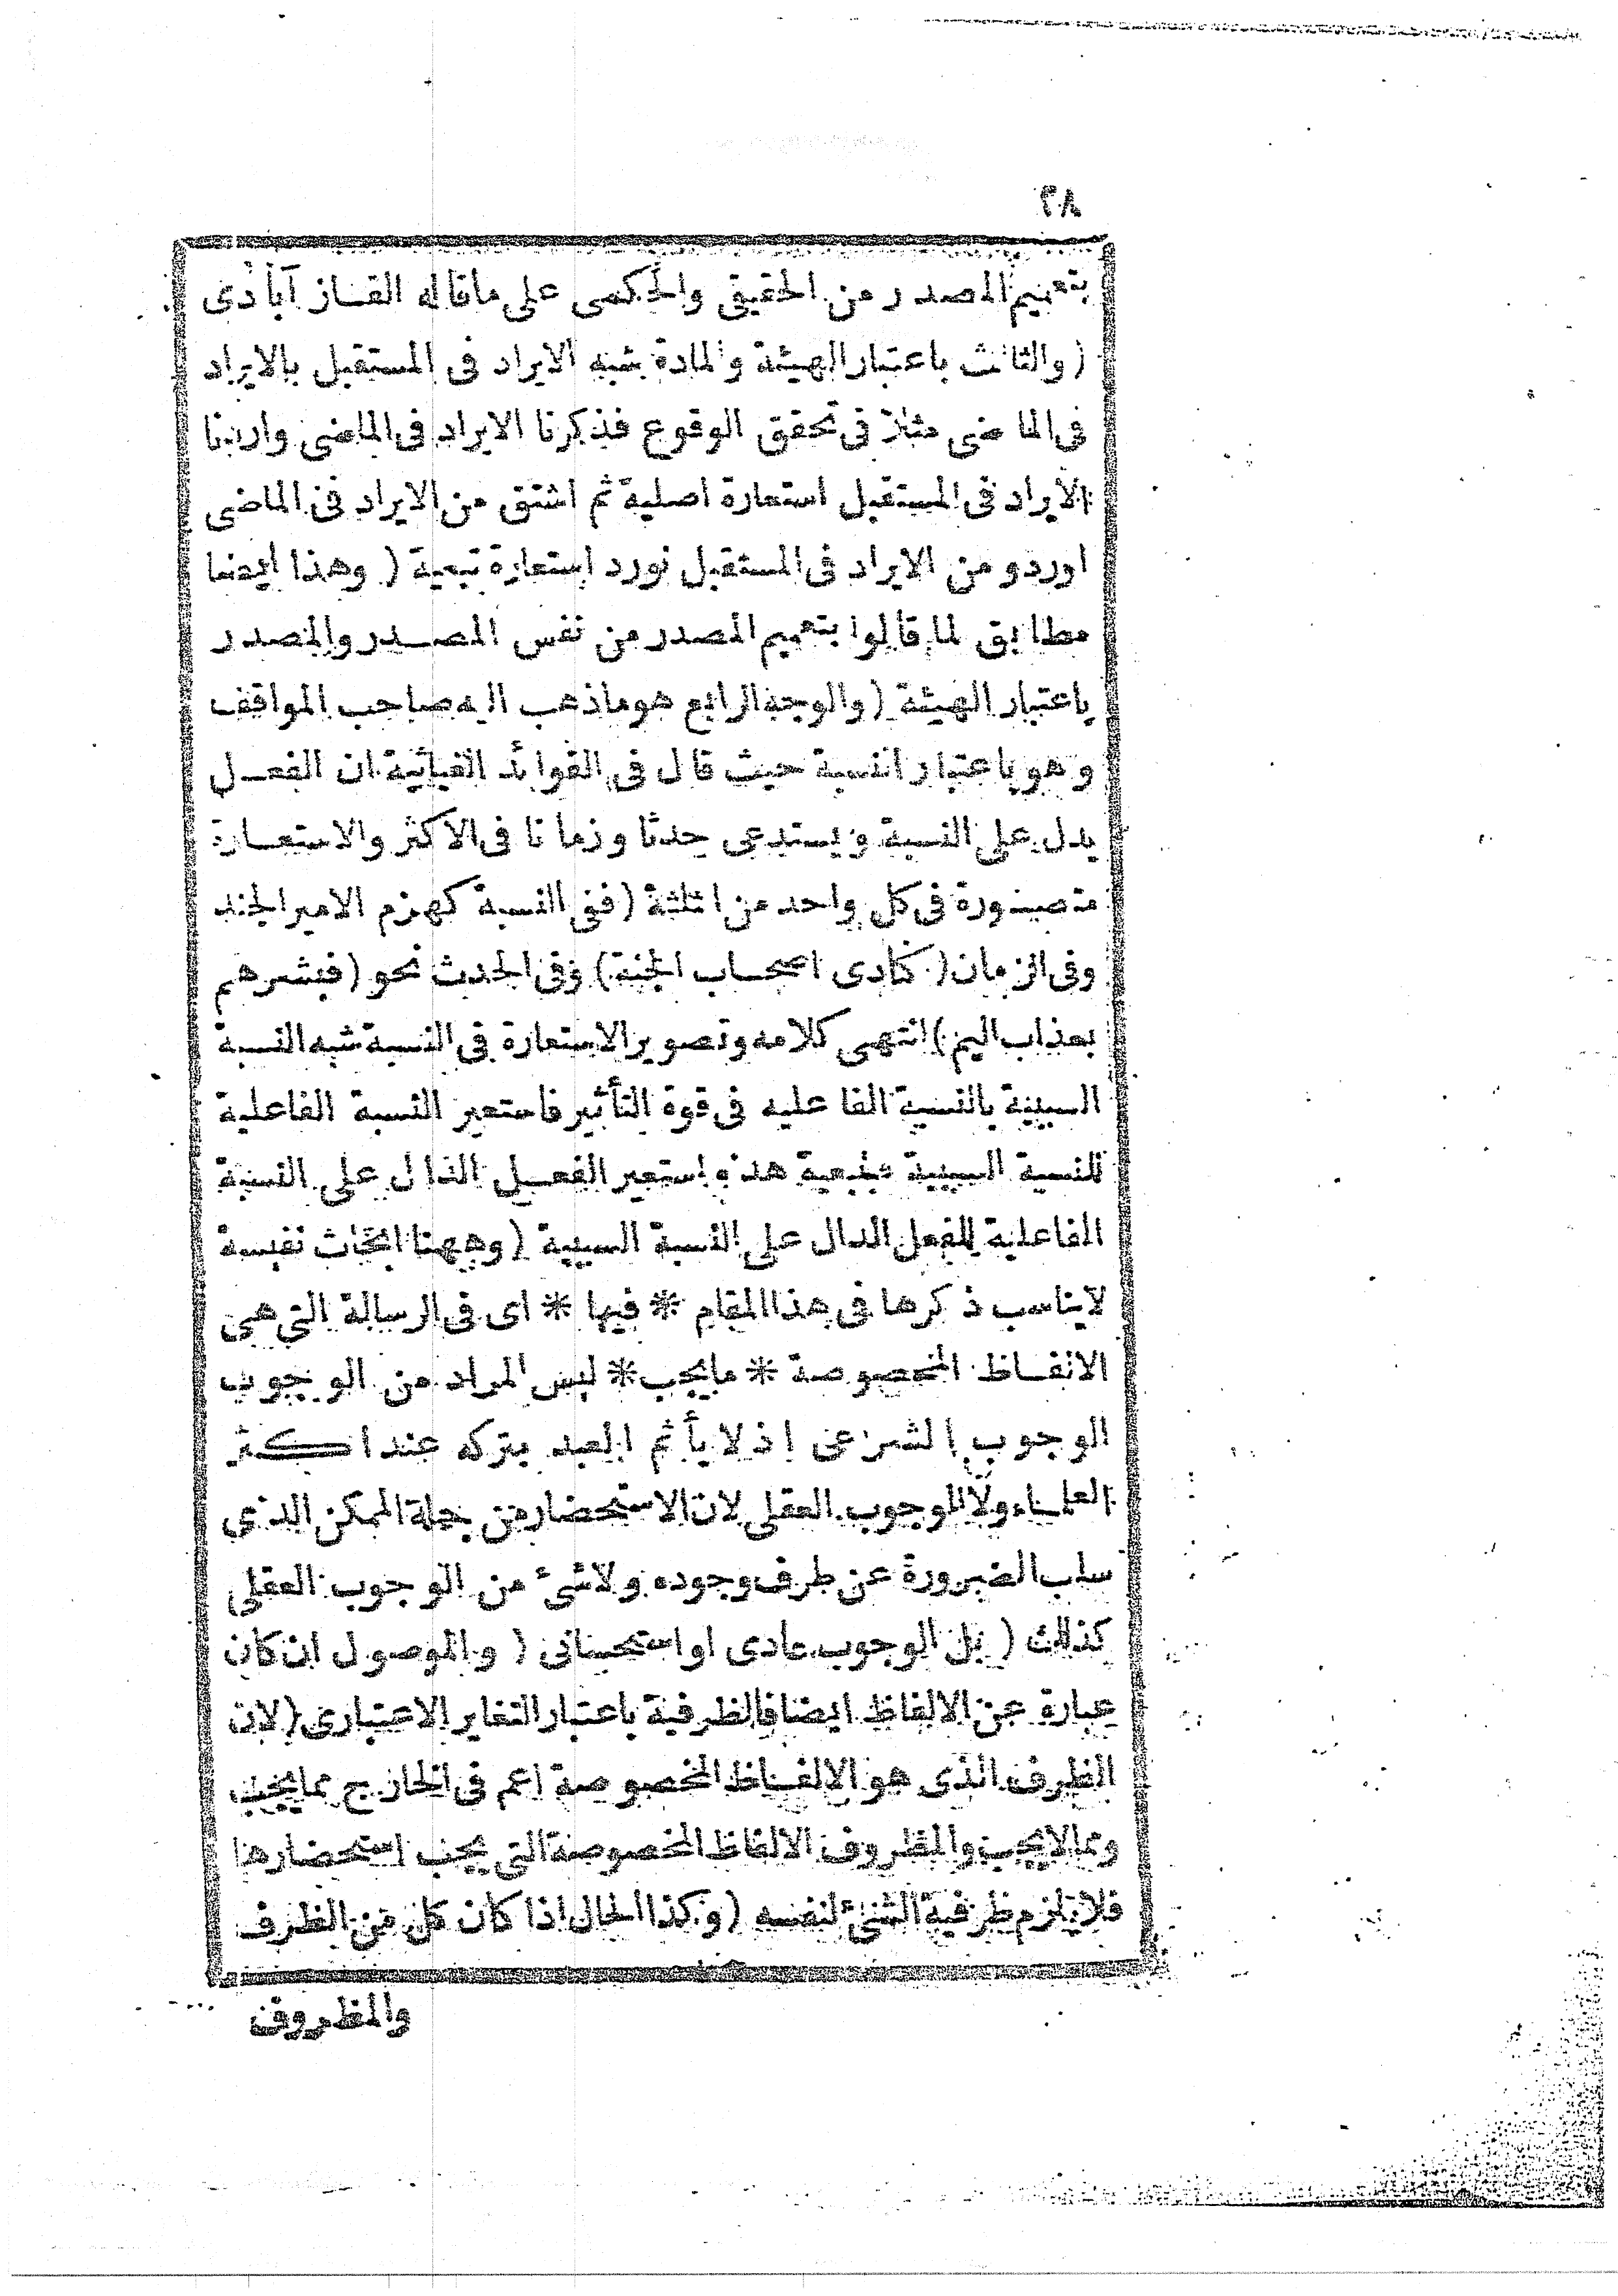 ٣٨
بتعميم المصدر من الحقيقى والحكمى على ماقاله القاز آبادى
(والثالث باعتبار الهيئة والمادة شبه الايراد فى المستقبل بالايراد
فى الماضى مثلا فى تحقق الوقوع فذكرنا الايراد فى الماضى واردنا
الايراد فى المستقبل استعارة اصلية ثم اشتق من الايراد فى الماضى
اورد ومن الايراد فى المستقبل نورد استعارة تبعية (وهذا ايضا
مطابق لما قالوا بتعميم المصدر من نفس المصدر والمصدر
باعتبار الهيئة (والوجه الرابع هو ماذهب اليه صاحب المواقف
وهو باعتبار النسبة حيث قال فى الفوائد الغياثية ان الفعل
يدل على النسبة ويستدعى حدثا وزمانا فى الاكثر والاستعارة
متصورة فى كل واحد من الثلثة (ففى النسبة كهزم الامير الجند
وفى الزمان (كنادى اصحاب الجنة) وفى الحدث نحو (فبشرهم
بعذاب اليم) انتهى كلامه وتصوير الاستعارة فى النسبة شبه النسبة
السببية بالنسبة الفاعليه فى قوة التأثير فاستعير النسبة الفاعلية
للنسبة السببية بتبعية هذه استعير الفعل الدال على النسبة
الفاعلية للفعل الدال على النسبة السببية (وههنا ابحاث نفيسة
لايناسب ذكرها فى هذا المقام * فيها * اى فى الرسالة التى هى
الالفاظ المخصوصة * مايجب * ليس المراد من الوجوب
الوجوب الشرعى اذ لا يأثم العبد بتركه عند اكثر
العلماء ولا الوجوب العقلى لان الاستحضار من جملة الممكن الذى
سلب الضرورة عن طرف وجوده ولاشئ من الوجوب العقلى
كذلك (بل الوجوب عادى او استحسانى (والموصول ان كان
عبارة عن الالفاظ ايضا فالظرفية باعتبار التغاير الاعتبارى (لان
الظرف الذى هو الالفاظ المخصوصة اعم فى الخارج مما يجب
ومما لايجب والمظروف الالفاظ المخصوصة التى يجب استحضارها
فلا يلزم ظرفية الشئ لنفسه (وكذا الحال اذا كان كل من الظرف
والمظروف